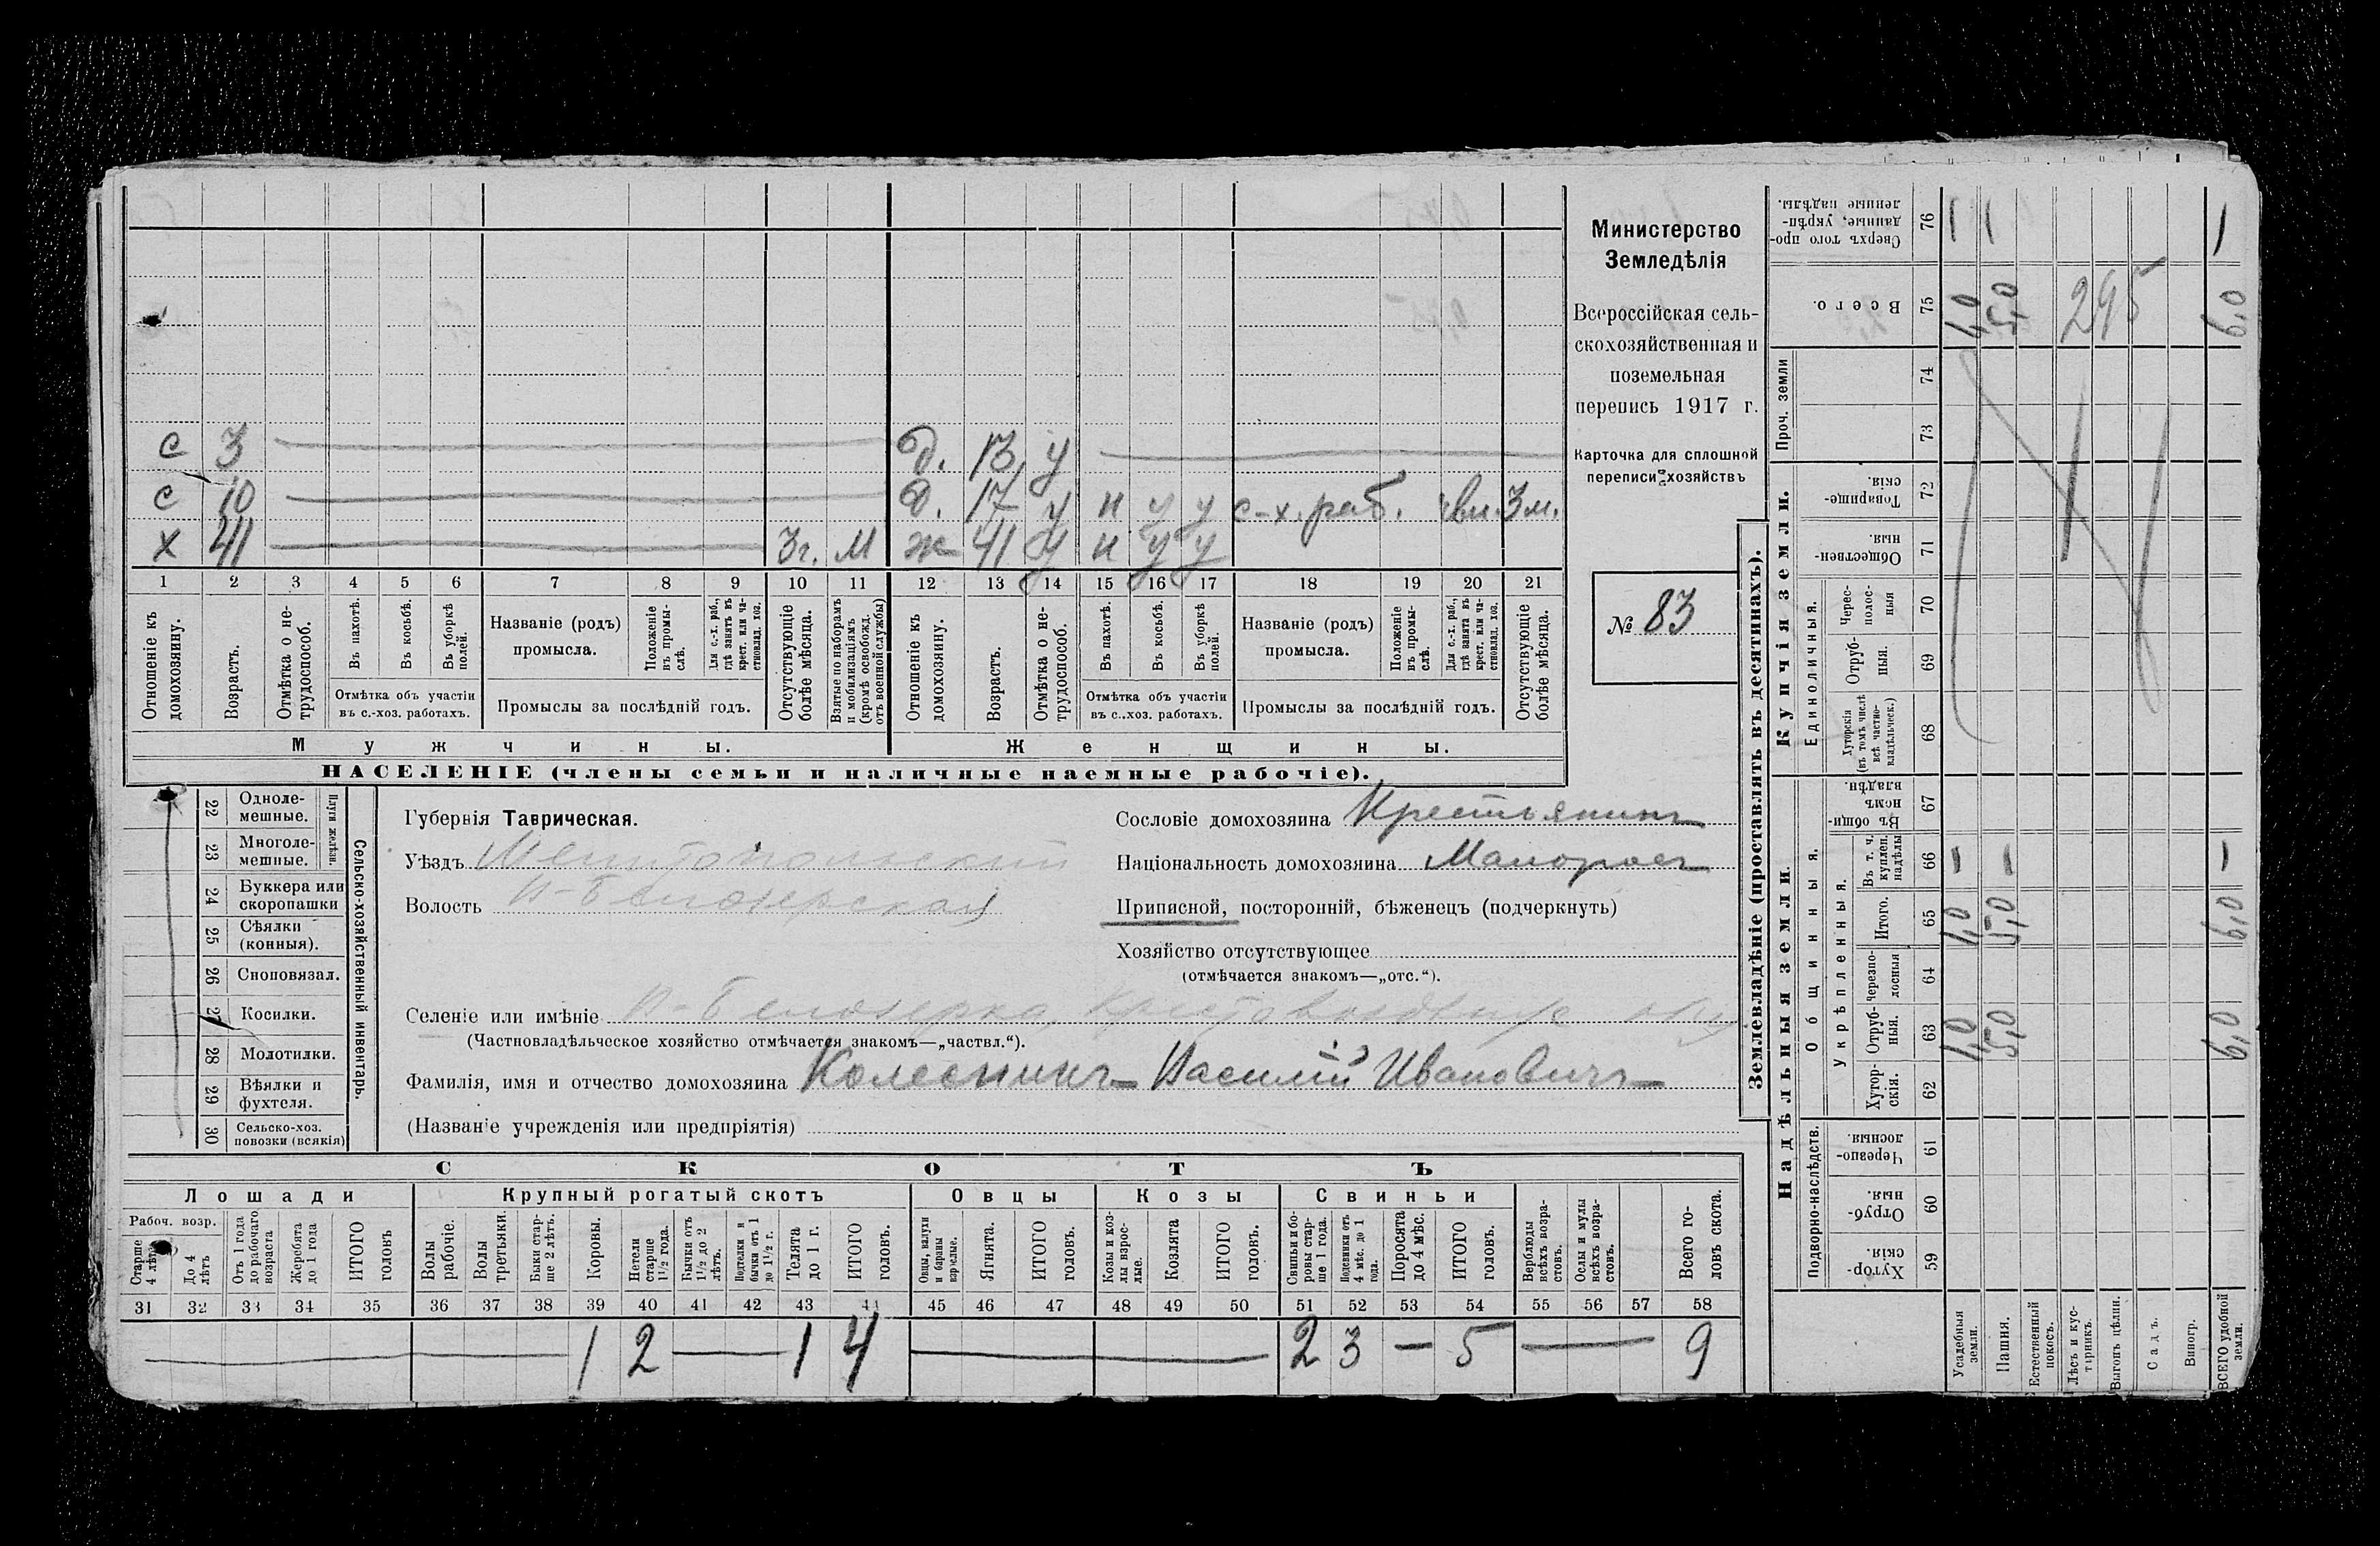 Министерство
Земледѣлія
Всероссійская сель-
скохозяйственная и
поземельная
перепись 1917 г.
Карточка для сплошной
переписи хозяйствъ
№ 83
с 3 д. 13 у
с 10 д. 17 у н у у с-х. раб. 3 м.
х 41 3 г. м ж 41 у н у у
1 2 3 4 5 6 7 8 9 10 11 12 13 14 15 16 17 18 19 20 21
Отношеніе къ домохозяину.
Возрастъ.
Отмѣтка о не-трудоспособ.
Въ пахотѣ.
Въ косьбѣ.
Въ уборкѣ полей.
Отмѣтка объ участіи
въ с.-хоз. работахъ.
Названіе (родъ)
промысла.
Положеніе въ промы-слѣ.
Для с.-х. раб., гдѣ занятъ въ крест. или ча-стновлад. хоз.
Промыслы за послѣдній годъ.
Отсутствующіе болѣе мѣсяца.
Взятые по наборамъ и мобилизаціямъ (кромѣ освобожд. отъ военной службы)
Отношеніе къ домохозяину.
Возрастъ.
Отмѣтка о не-трудоспособ.
Въ пахотѣ.
Въ косьбѣ.
Въ уборкѣ полей.
Отмѣтка объ участіи
въ с.-хоз. работахъ.
Названіе (родъ)
промысла.
Положеніе въ промы-слѣ.
Для с.-х. раб., гдѣ занята въ крест. или ча-стновлад. хоз.
Промыслы за послѣдній годъ.
Отсутствующіе болѣе мѣсяца.
Мужчины. Женщины.
НАСЕЛЕНІЕ (члены семьи и наличные наемные рабочіе).
Сельско-хозяйственный инвентарь.
Плуги желѣзн.
22 Одноле-мешные.
23 Многоле-мешные.
24 Буккера или скоропашки
25 Сѣялки (конныя).
26 Сноповязал.
27 Косилки.
28 Молотилки.
29 Вѣялки и фухтеля.
30 Сельско-хоз. повозки (всякія)
Губернія Таврическая.
Уѣздъ Мелитопольскій
Волость Н-Белозерская
Сословіе домохозяина Крестьянинъ
Національность домохозяина Малороссъ
Приписной, посторонній, бѣженецъ (подчеркнуть)
Хозяйство отсутствующее
(отмѣчается знакомъ—„отс.“).
Селеніе или имѣніе Н-Белозерка,
(Частновладѣльческое хозяйство отмѣчается знакомъ—„частвл.“).
Фамилія, имя и отчество домохозяина Колесникъ Василій Ивановичъ
(Названіе учрежденія или предпріятія)
СКОТЪ
Лошади Крупный рогатый скотъ Овцы Козы Свиньи
Рабоч. возр.
Старше 4 лѣтъ
До 4 лѣтъ
Отъ 1 года до рабочаго возраста
Жеребята до 1 года
ИТОГО головъ
Волы рабочіе.
Волы третьяки.
Быки стар-ше 2 лѣтъ.
Коровы.
Нетели старше 1 1/2 года.
Бычки отъ 1 1/2 до 2 лѣтъ.
Подтелки и бычки отъ 1 до 1 1/2 г.
Телята до 1 г.
ИТОГО головъ.
Овцы, валухи и бараны взрослые.
Ягнята.
ИТОГО головъ.
Козы и коз-лы взрос-лые.
Козлята
ИТОГО головъ.
Свиньи и бо-ровы стар-ше 1 года.
Подсвинки отъ 4 мѣс. до 1 года.
Поросята до 4 мѣс.
ИТОГО головъ.
Верблюды всѣхъ возра-стовъ.
Ослы и мулы всѣхъ возра-стовъ.
Всего го-ловъ скота.
31 32 33 34 35 36 37 38 39 40 41 42 43 44 45 46 47 48 49 50 51 52 53 54 55 56 57 58
1 2 — 1 4 — 2 3 — 5 — 9
Землевладѣніе (проставлять въ десятинахъ).
Купчія земли.
Надѣльныя земли.
76 Сверхъ того про-данные, укрѣп-ленные надѣлы. — — —
75 Всего. 1,0 5,0 295 6,0
Проч. земли
74
73
72 Товарище-скія.
71 Обществен-ныя.
Единоличныя.
70 Черес-полос-ныя
69 Отруб-ныя.
68 Хуторскія (въ томъ числѣ всѣ частно-владѣльческ.)
Общинныя.
67 Въ общи-номъ владѣн.
Укрѣпленныя.
66 Въ т. ч. куплен. надѣлы — — —
65 Итого. 1,0 5,0 6,0
64 Черезпо-лосныя
63 Отруб-ныя. 1,0 5,0 6,0
62 Хутор-скія.
Подворно-наслѣдств.
61 Черезпо-лосныя.
60 Отруб-ныя.
59 Хутор-скія.
Усадебныя земли.
Пашня.
Естественный покосъ.
Лѣсъ и кус-тарникъ.
Выгонъ цѣлин.
Садъ.
Виногр.
ВСЕГО удобной земли.